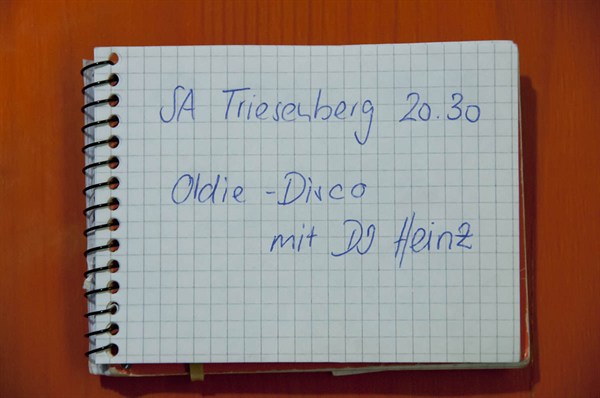 SA Triesenberg 20.30
Oldie - Disco
mit DJ Heinz